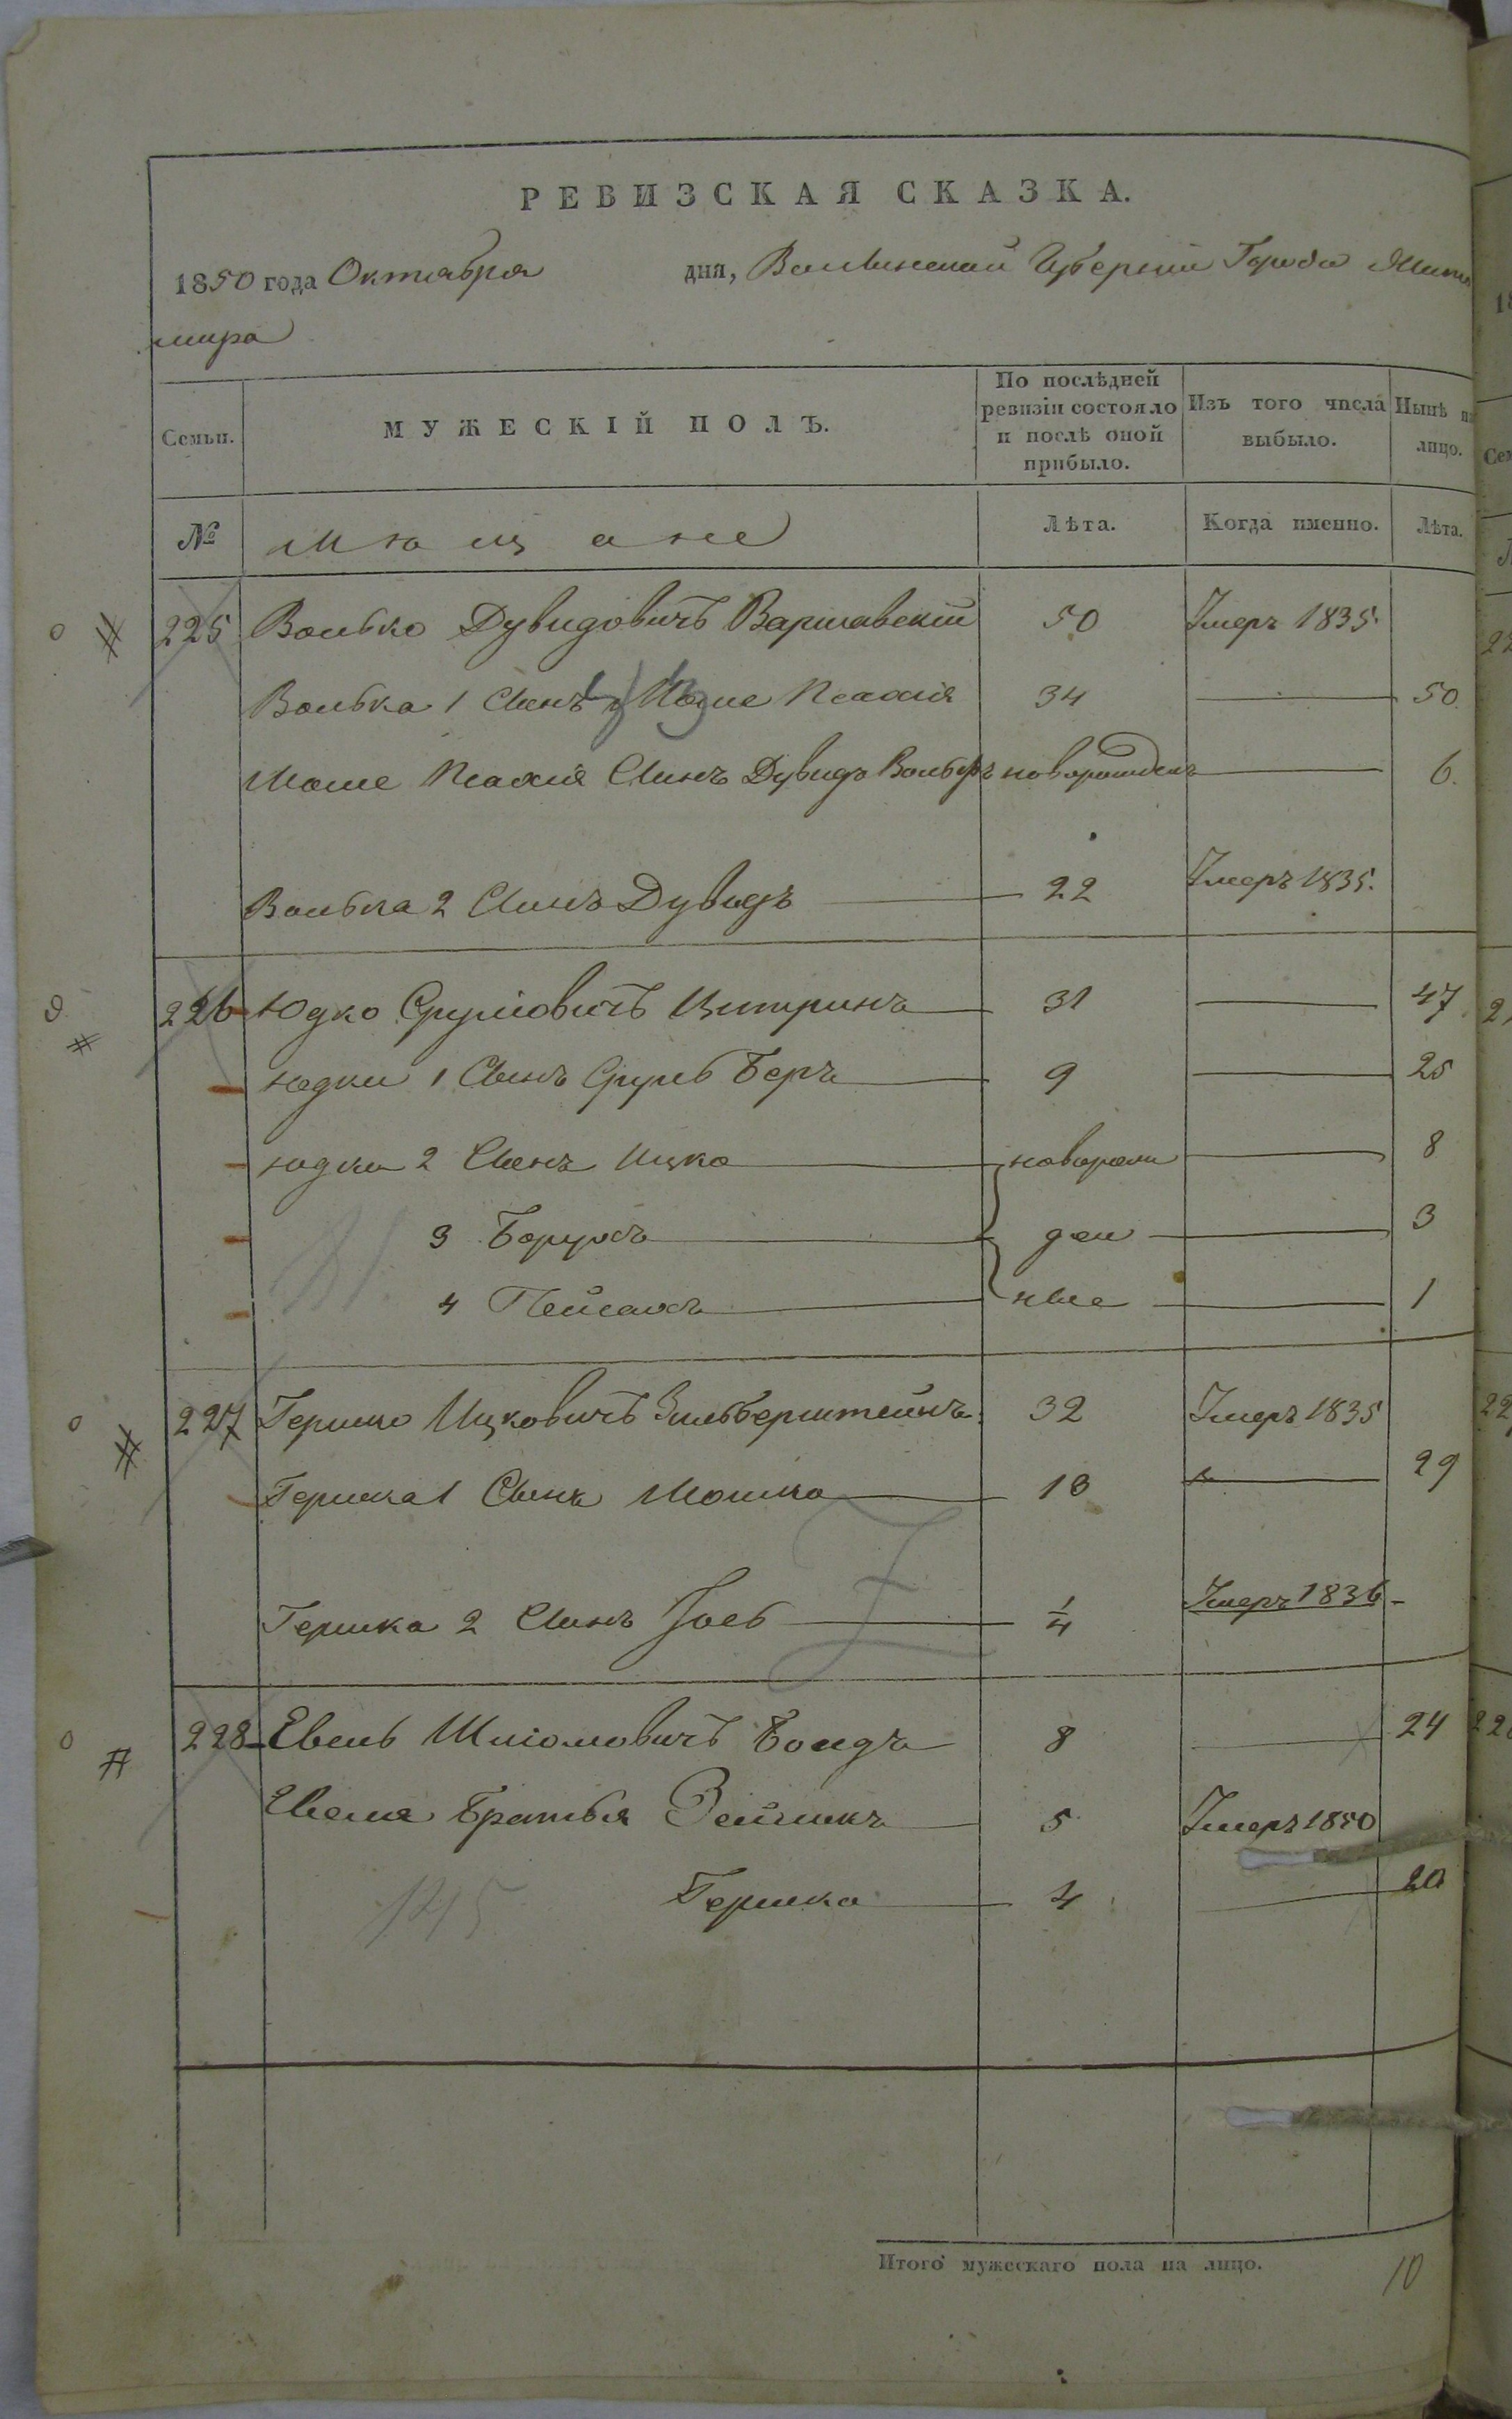 РЕВИЗСКАЯ СКАЗКА.
1850 года Октабря дня, Волынской Губернии Города Жито
мира
Семьи. МУЖЕСКІЙ ПОЛЪ. По послѣдней ревизіи состояло и послѣ оной прибыло. Изъ того числа выбыло. Нынѣ на лицо.
№ Мѣщане Лѣта. Когда именно. Лѣта.
225 Волько Дувидовичъ Варшавскій 50 Умеръ 1835.
Волька 1 Сынъ Моше 34 50
Моше Сынъ Дувидъ Вольфъ новорожденъ 6.
Волька 2 Сынъ Дувидъ 22 Умеръ 1835.
226 Юдко Срулiовичъ Цитринъ 31 47
Юдки 1 Сынъ Сруль Беръ 9 25
Юдки 2 Сынъ Ицко новорож 8
3 Борухъ ден 3
4 Пейсахъ ные 1
227 Гершко Ицковичъ Зильберштейнъ 32 Умеръ 1835
Гершка 1 Сынъ Мошко 13 29
Гершка 2 Сынъ Іоель 1/4 Умеръ 1836
228 Евель Шліомовичъ Бондъ 8 24
Евеля Братья Зейликъ 5 Умеръ 1850
145 Гершко 4 20
Итого мужескаго пола на лицо. 10